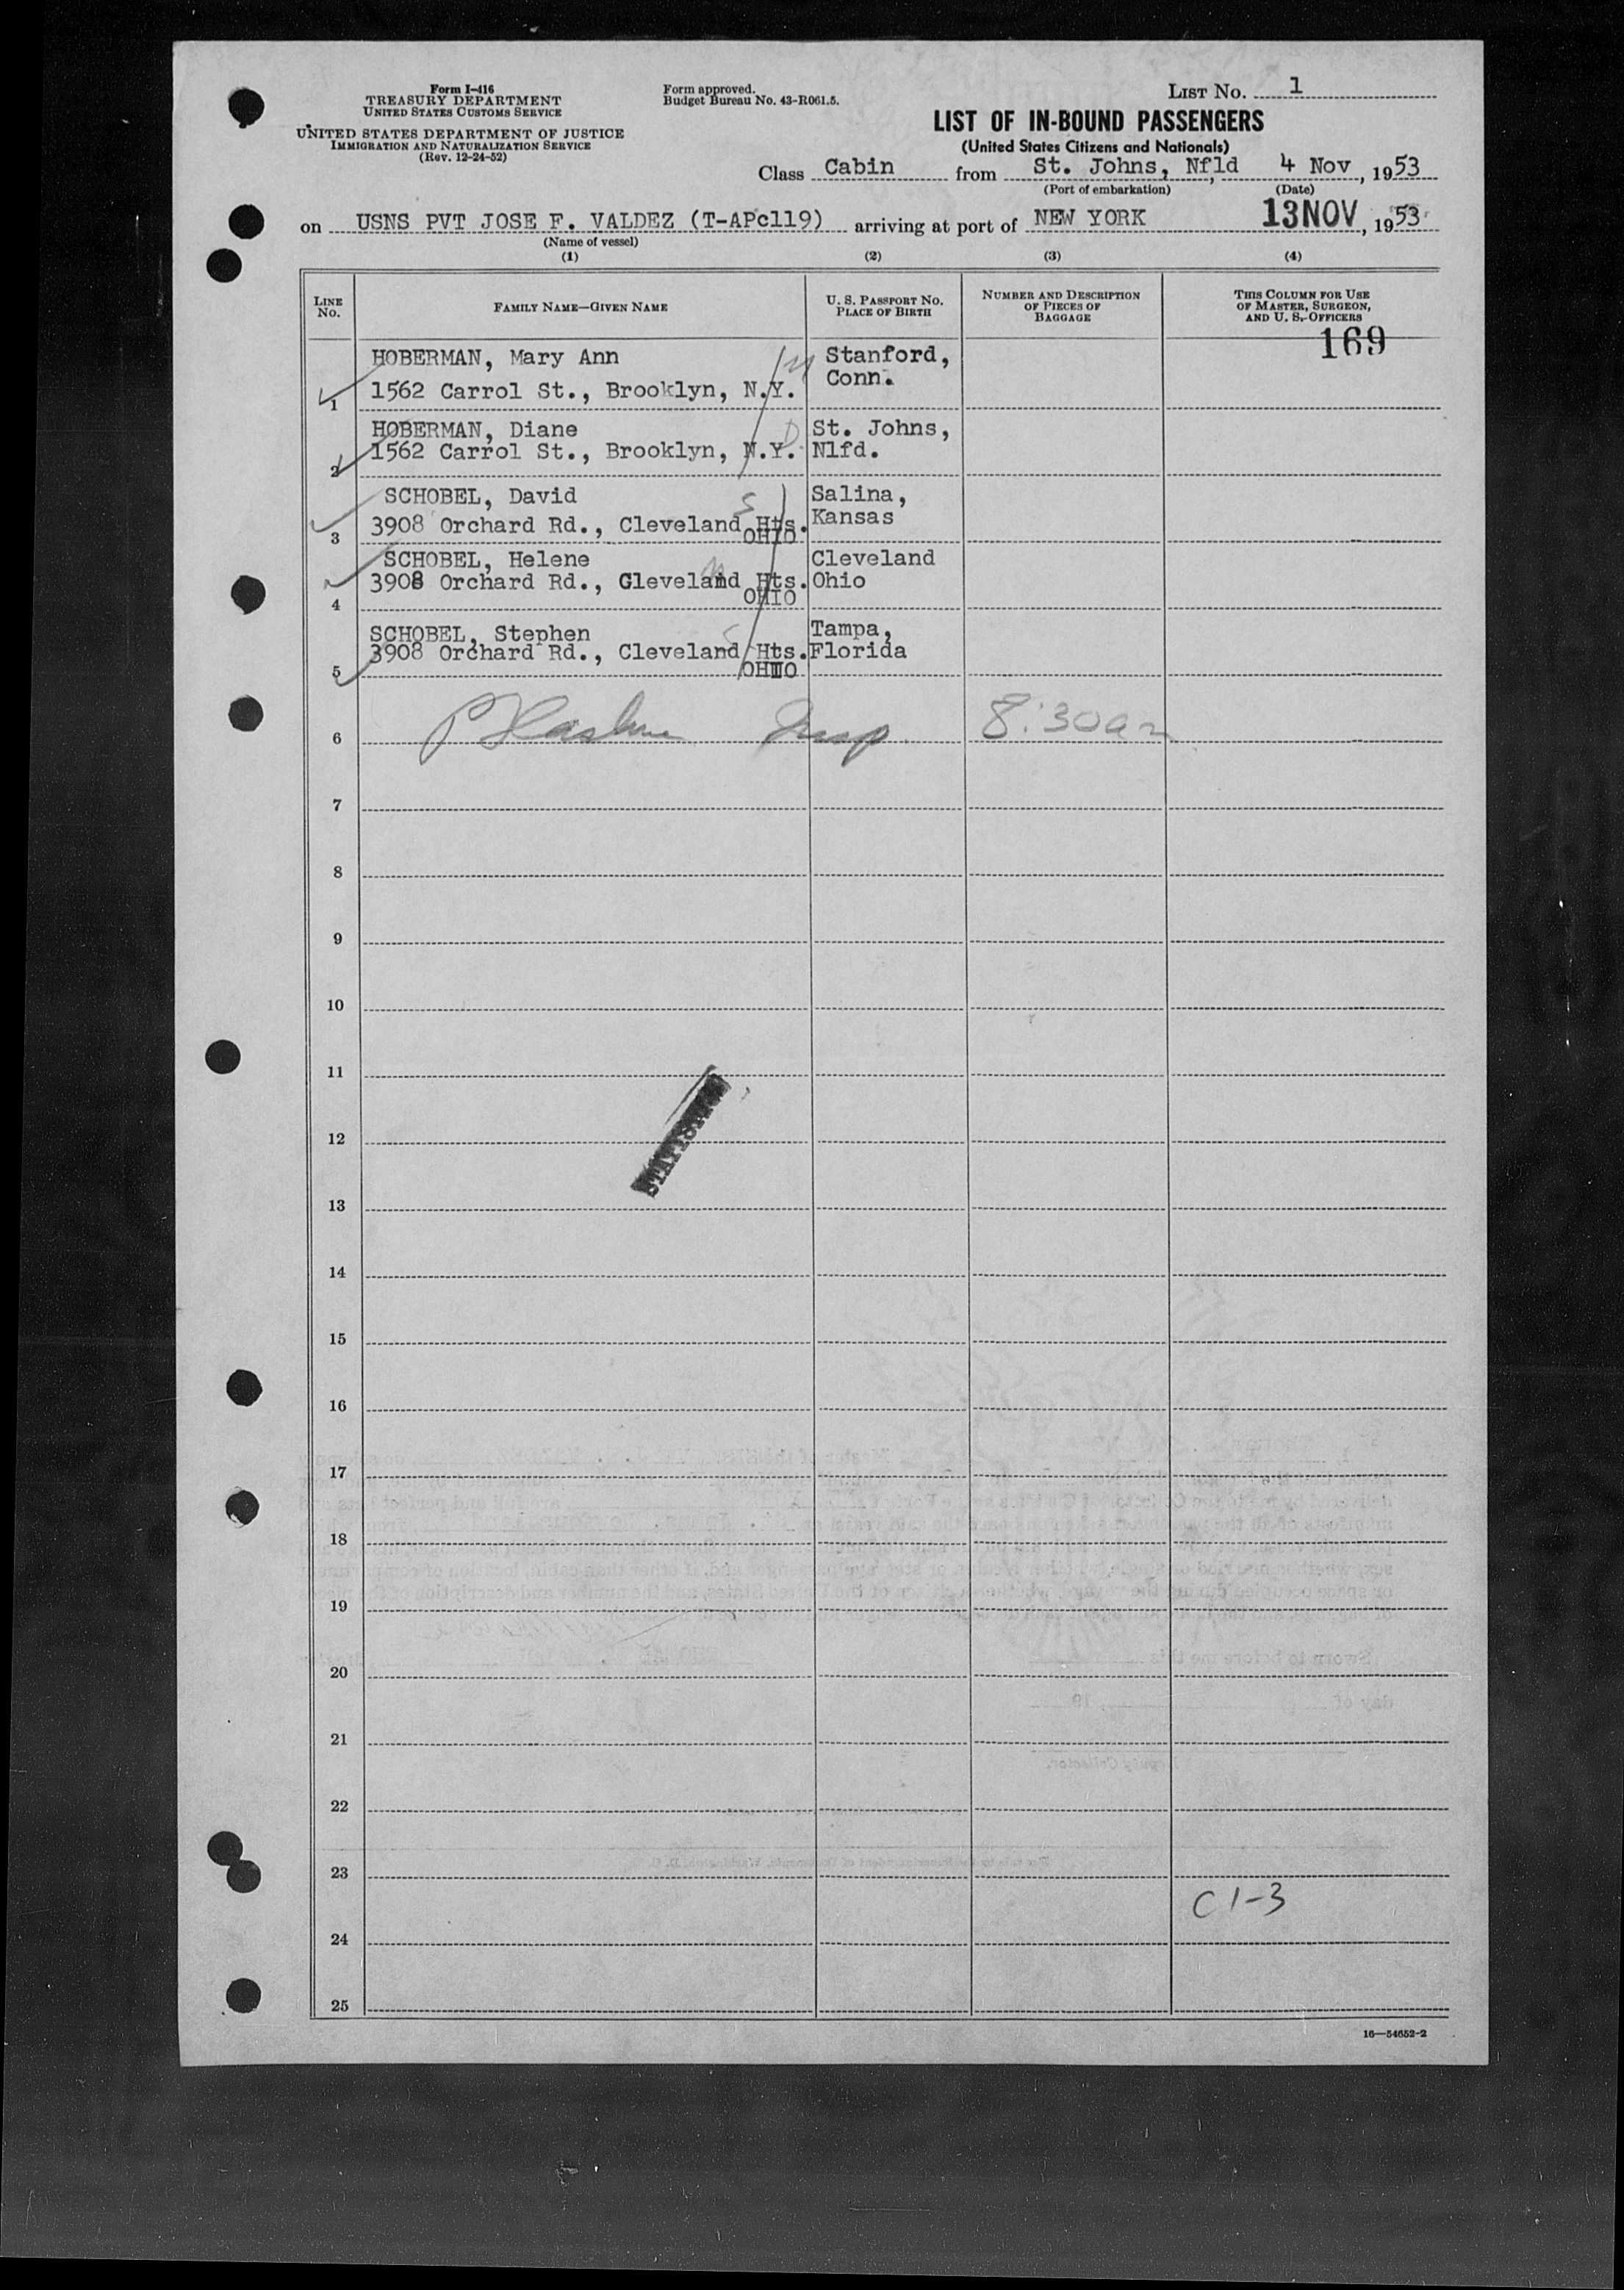 Form I-416
TREASURY DEPARTMENT
UNITED STATES CUSTOMS SERVICE
UNITED STATES DEPARTMENT OF JUSTICE
IMMIGRATION AND NATURALIZATION SERVICE
(Rev. 12-24-52)
Form approved.
Budget Bureau No. 43-R061.5.
LIST NO. 1
LIST OF IN-BOUND PASSENGERS
(United States Citizens and Nationals)
Class Cabin from St. Johns, Nfld, 4 Nov, 1953
(Port of embarkation) (Date)
on USNS PVT JOSE F. VALDEZ (T-APc119) arriving at port of NEW YORK 13NOV, 1953
(Name of vessel)
(1) (2) (3) (4)
LINE NO. FAMILY NAME—GIVEN NAME U. S. PASSPORT NO. PLACE OF BIRTH NUMBER AND DESCRIPTION OF PIECES OF BAGGAGE THIS COLUMN FOR USE OF MASTER, SURGEON, AND U. S. OFFICERS
169
HOBERMAN, Mary Ann Stanford,
1 1562 Carrol St., Brooklyn, N.Y. Conn.
HOBERMAN, Diane St. Johns,
2 1562 Carrol St., Brooklyn, N.Y. Nlfd.
SCHOBEL, David Salina,
3 3908 Orchard Rd., Cleveland Hts. Kansas
OHIO
SCHOBEL, Helene Cleveland
3908 Orchard Rd., Cleveland Hts. Ohio
4 OHIO
SCHOBEL, Stephen Tampa,
3908 Orchard Rd., Cleveland Hts. Florida
5 OHIO
6 Insp 8:30am
7
8
9
10
11
12
13
14
15
16
17
18
19
20
21
22
23
C 1-3
24
25
16—54652-2